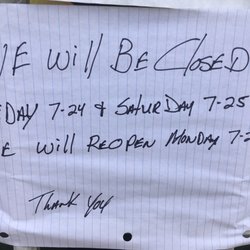 WE Will BE CLOSED
7-24 & SATURDAY 7-25
WE Will REOPEN MONDAY 7-2
THANK YOU